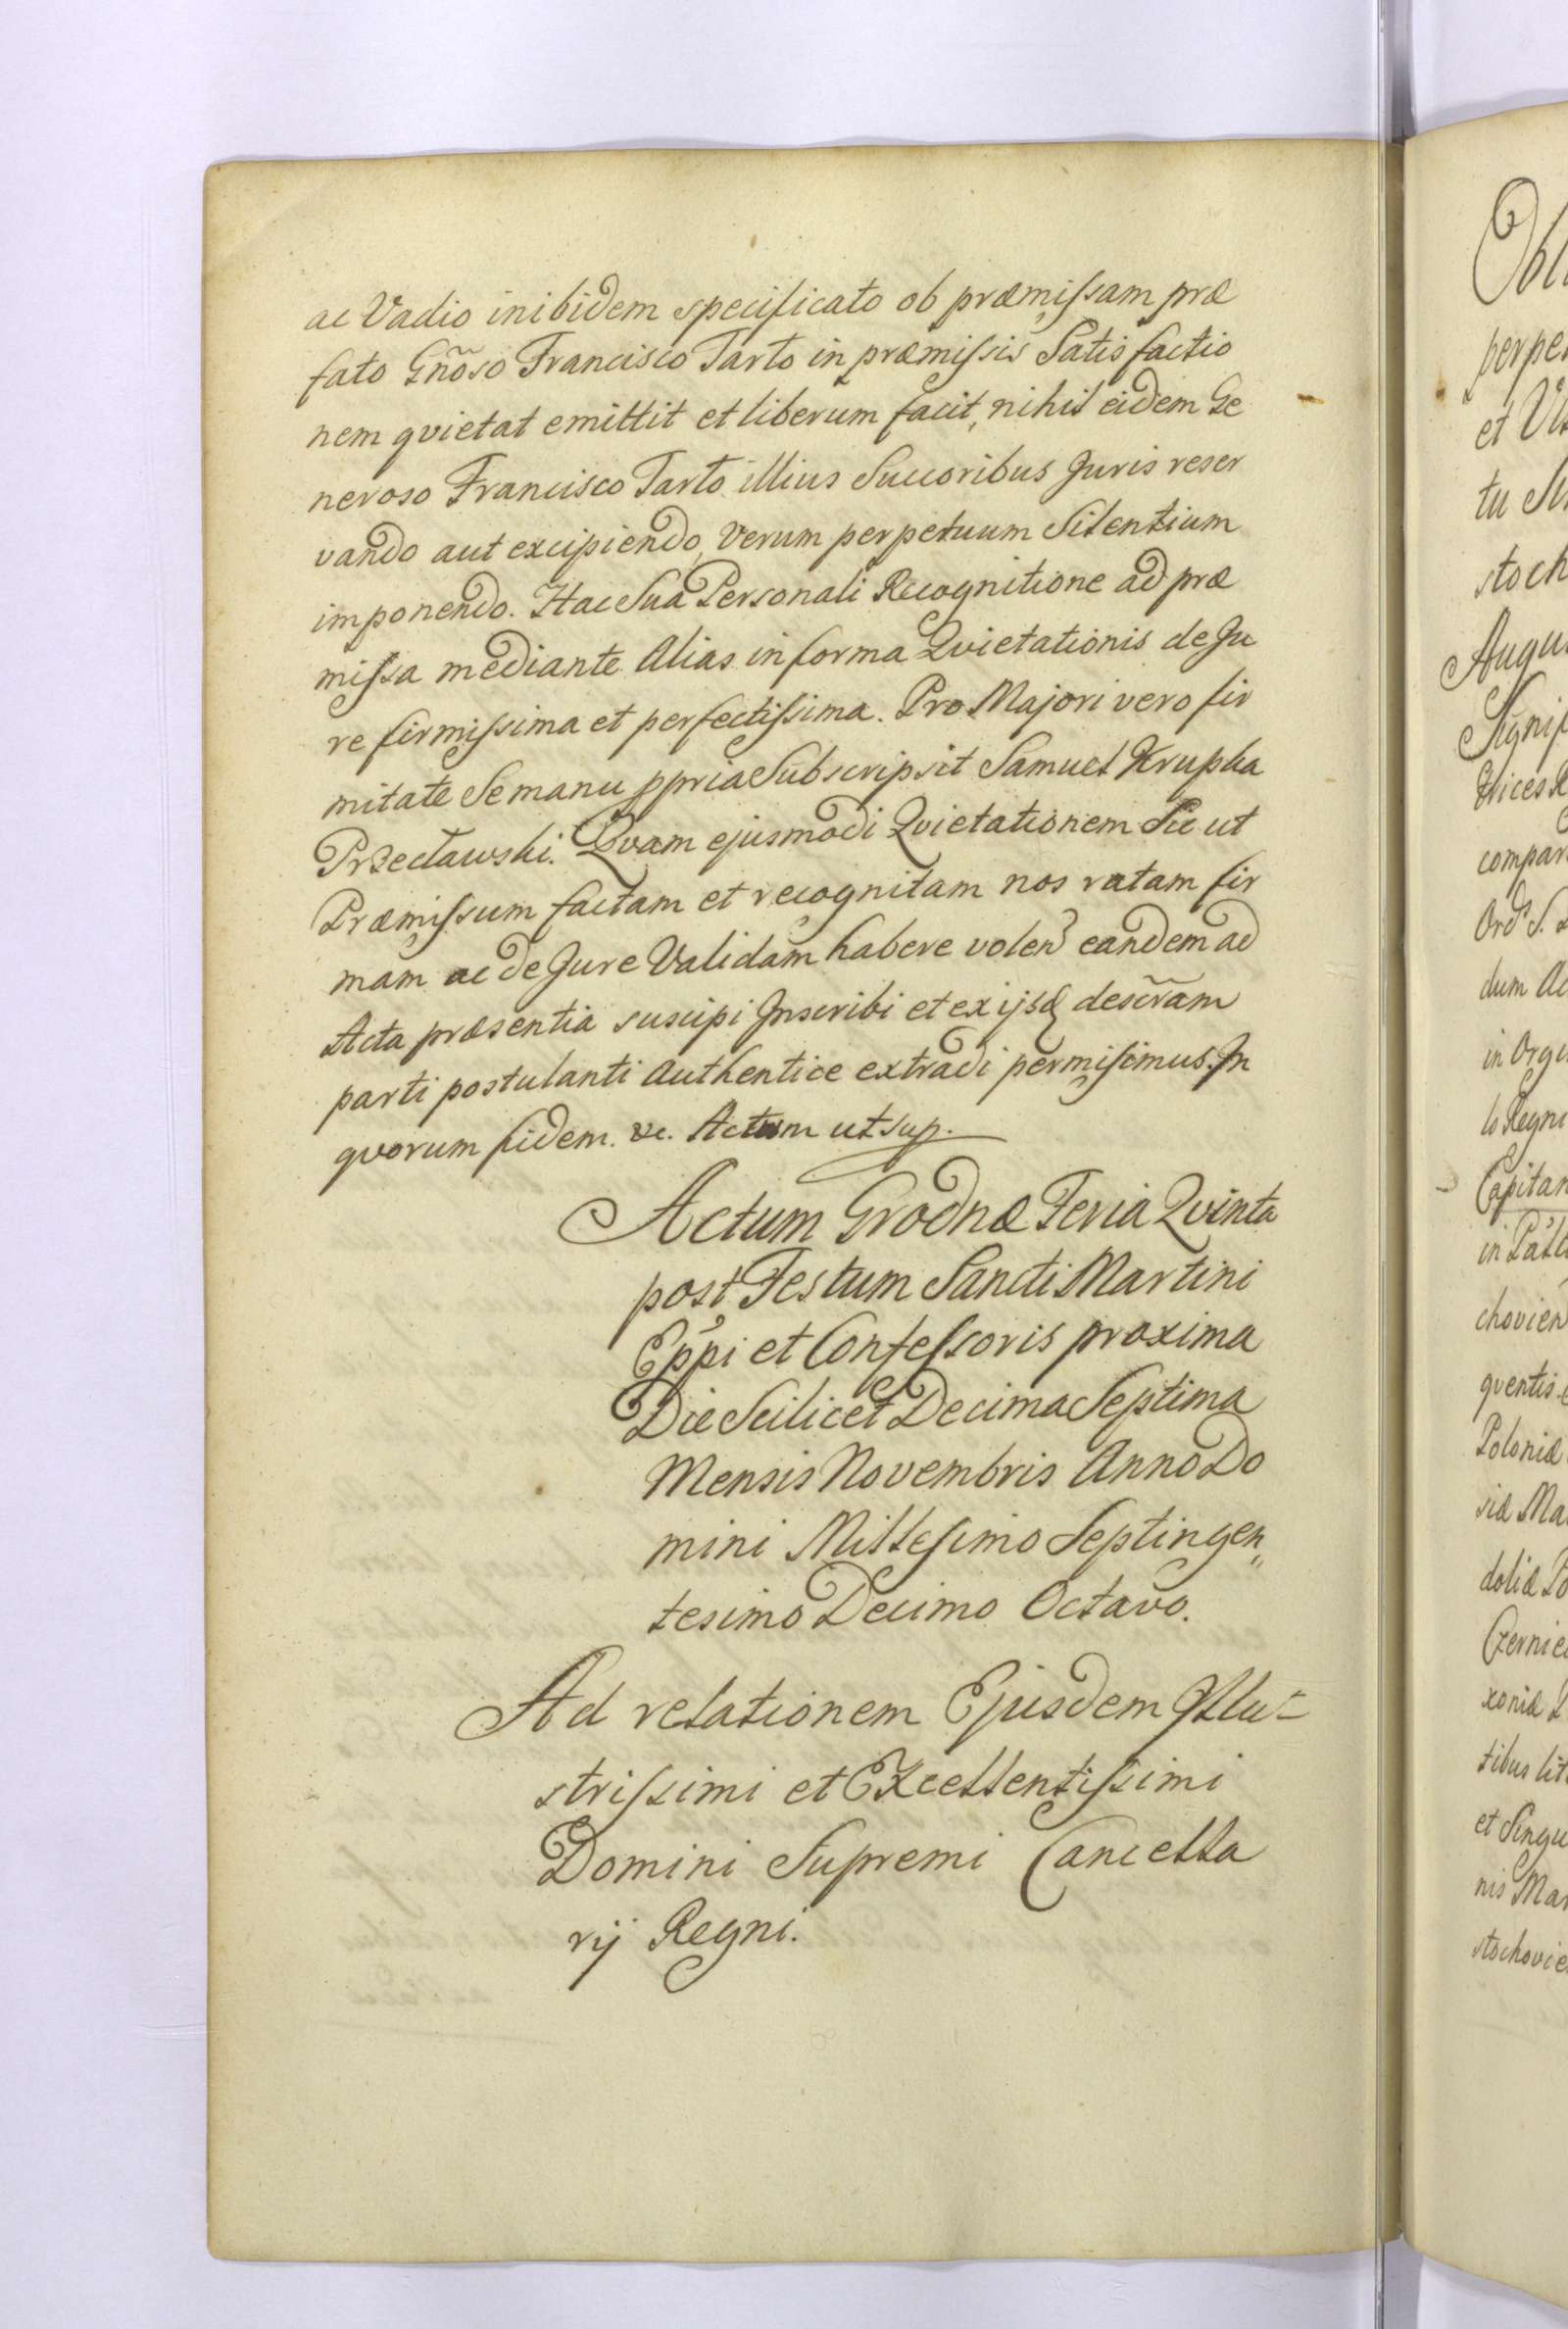 ac Vadio inibidem specificato ob præmissam præ
fato Gñoso Francisco Tarto in præmissis Satisfactio
nem qvietat emittit et liberum facit, nihil eidem Ge
neroso Francisco Tarto illius Succoribus Juris reser
vando aut excipiendo, Verum perpetuum Silentium
imponendo. Hac Sua Personali Recognitione ad præ
missa mediante Alias in forma Qvietationis de Ju
re firmissima et perfectissima. Pro Majori vero fir
mitate Se manu ppria Subscripsit Samuel Krupka
Przecławski. Qvam ejusmodi Qvietationem Sic ut
Præmissum factam et recognitam nos ratam fir
mam ac de Jure Validam habere volen eandem ad
Acta præsentia suscipi Inscribi et ex ijsq descr̃am
parti postulanti Authentice extradi permisimus. In
qvorum fidem. &c. Actum ut sup.
Actum Grodnæ Feria Qvinta
post Festum Sancti Martini
Eppi et Confessoris proxima
Die Scilicet Decima Septima
Mensis Novembris Anno Do
mini Millesimo Septingen„
tesimo Decimo Octavo.
Ad relationem Ejusdem Illu-
strissimi et Excellentissimi
Domini Supremi Cancella
rij Regni.
perpe
et
tu
stoch
Augu
Signif
compar
Ord S.
dum Ac
in
lo Regni
Capitan
in
chovien
qventis
Poloniæ
siæ Ma
doliæ Po
Czernie
xoniæ
tibus lit
et Singu
nis Mar
stochovie